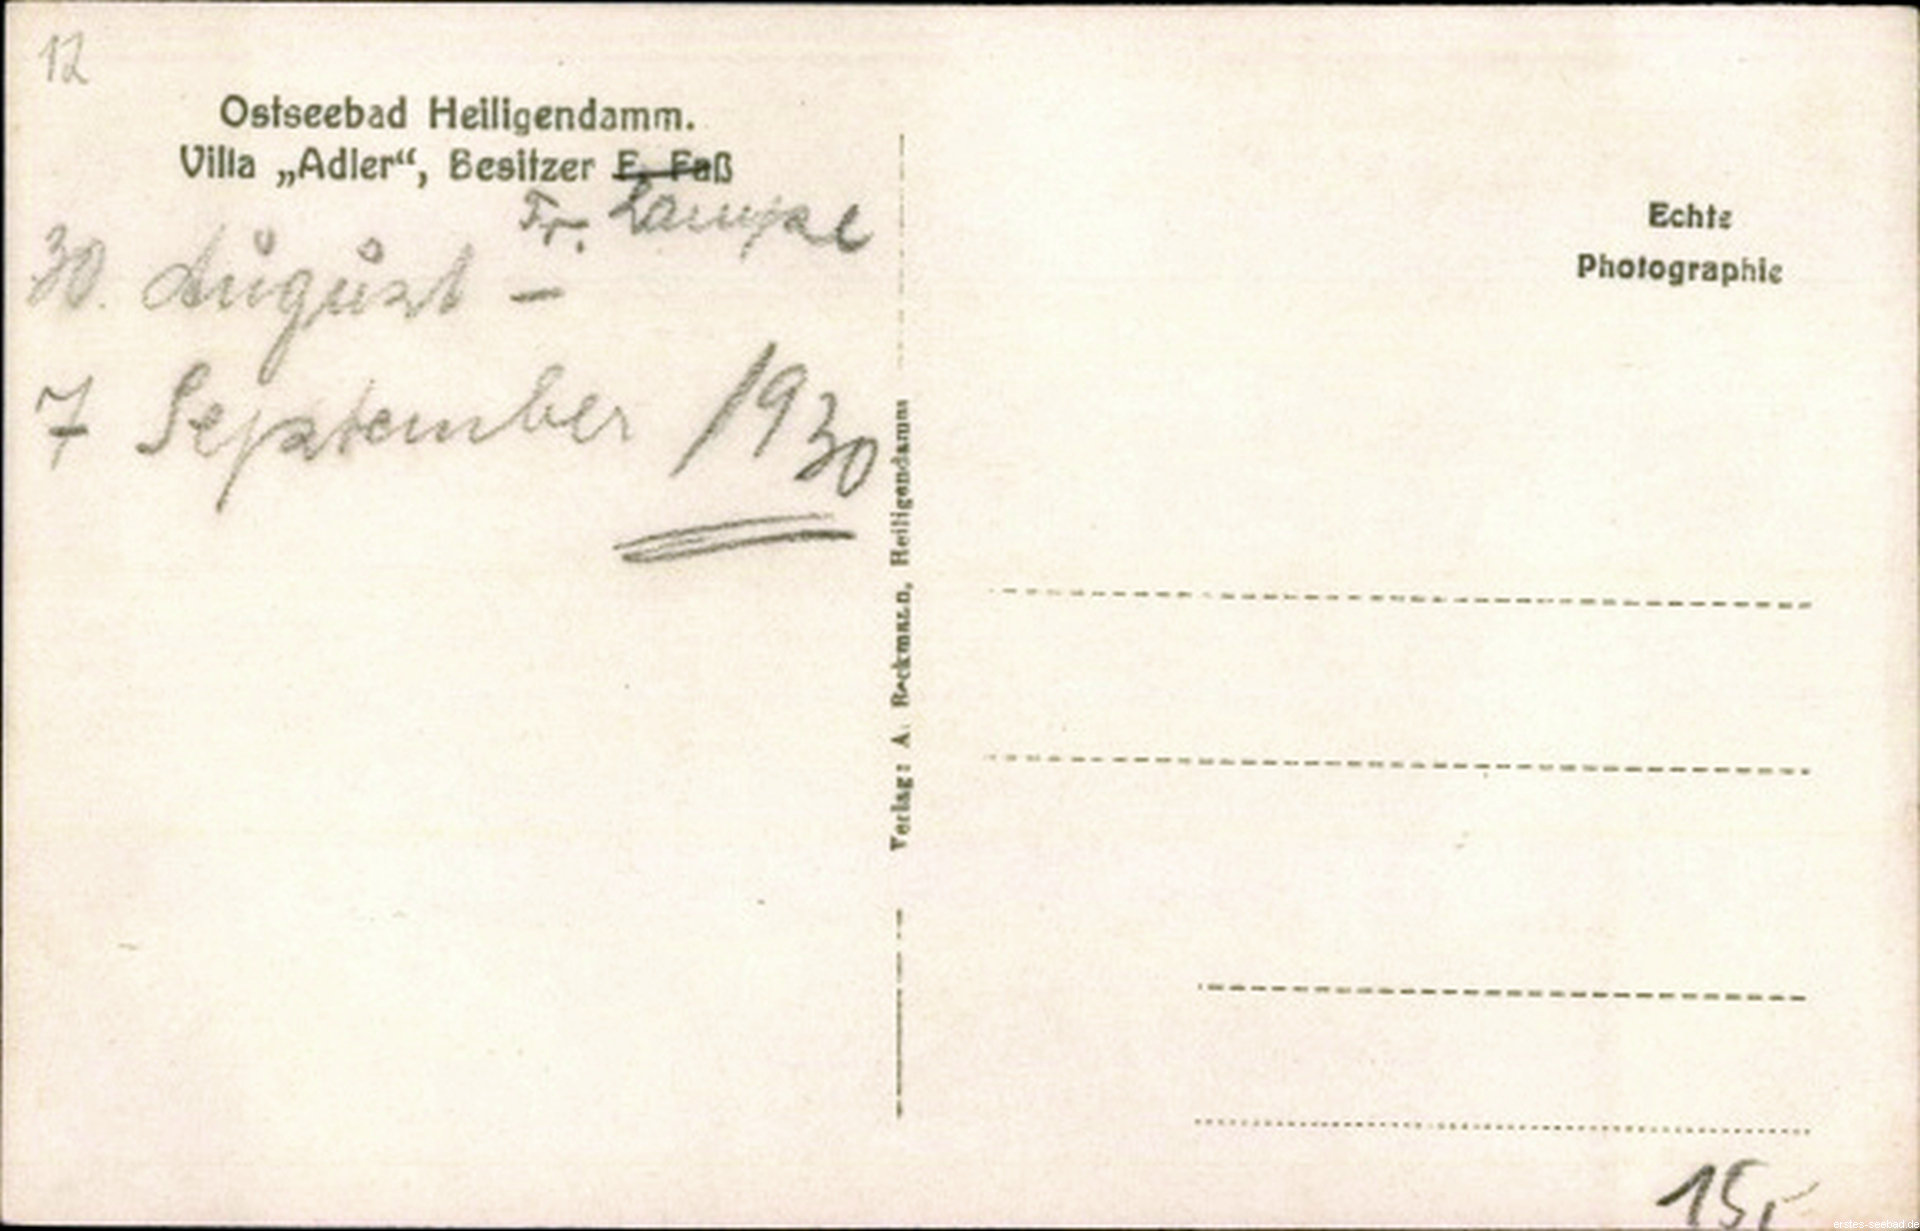 12
Ostseebad Heiligendamm.
Villa „Adler“, Besitzer F. Faß
Fr.
30. August –
7 September 1930
Verlag: A. Beckmann, Heiligendamm
Echte
Photographie
15,-
erstes-seebad.de